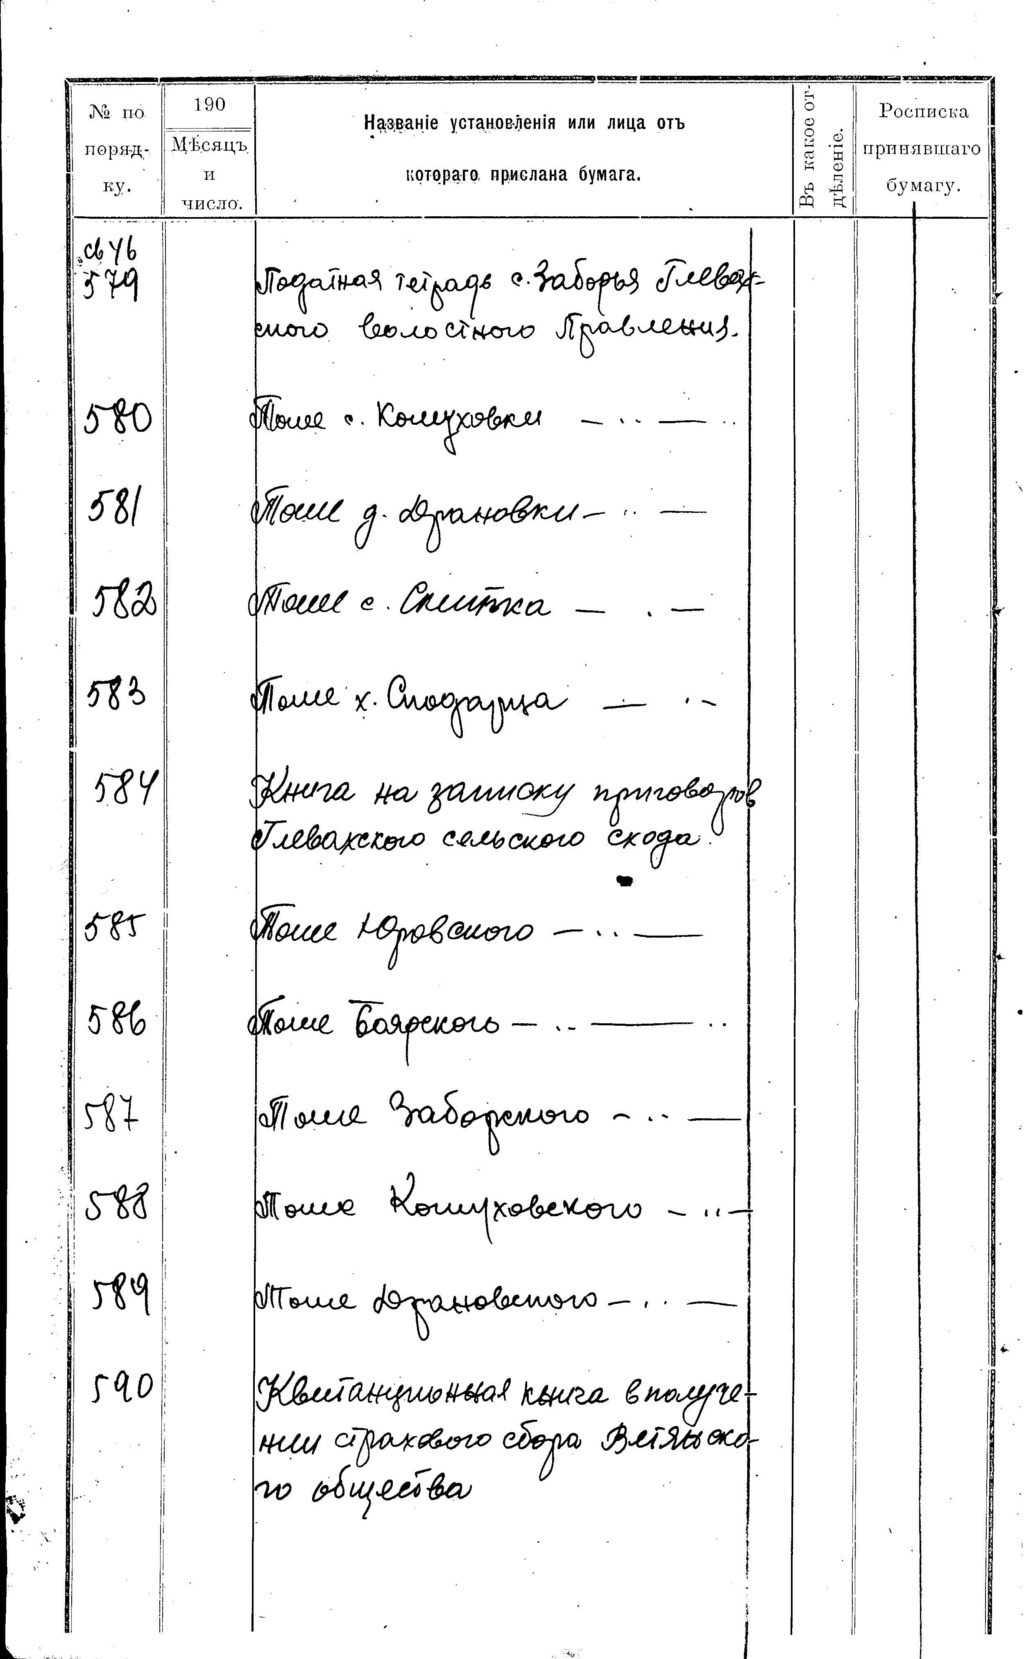 № по поряд- ку.
190
Мѣсяцъ и число.
Названіе установленія или лица отъ
котораго прислана бумага.
Въ какое от-
дѣленіе.
Росписка
принявшаго
бумагу.
св 46
579 Податная тетрадь с. Заборья Глевах-
ского волостного Правления.
580 Тоже с. Кожуховки — „ —
581 Тоже д. Дзрановки — „ —
582 Тоже с. Скитка — „ —
583 Тоже х. Сподарца — „ —
584 Книга на записку приговоров
Глевахского сельского схода.
585 Тоже Юровского — „ —
586 Тоже Боярского — „ —
587 Тоже Заборского — „ —
588 Тоже Кожуховского — „ —
589 Тоже Драновского — „ —
590 Квитанционная книга в получе-
нии страхового сбора
го общества